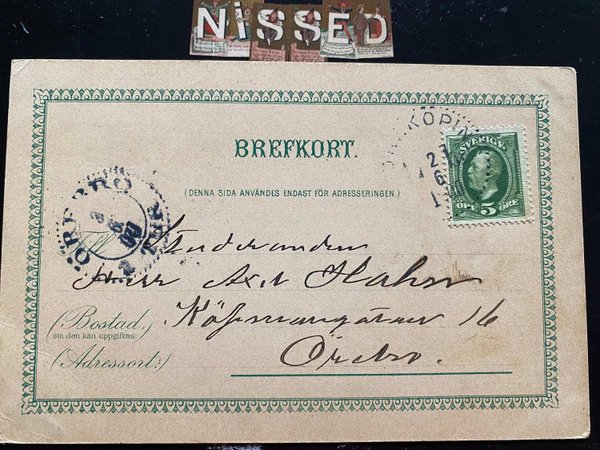 NiSSED
BREFKORT.
(DENNA SIDA ANVÄNDES ENDAST FÖR ADRESSERINGEN.)
KÖPIN
SVERIGE
5
ÖRE
ÖREBRO
Till
Studeranden
Herr Axel Hahn
Köpmangatan 16
Örebro.
(Bostad,)
om den kan uppgifvas:
(Adressort:)